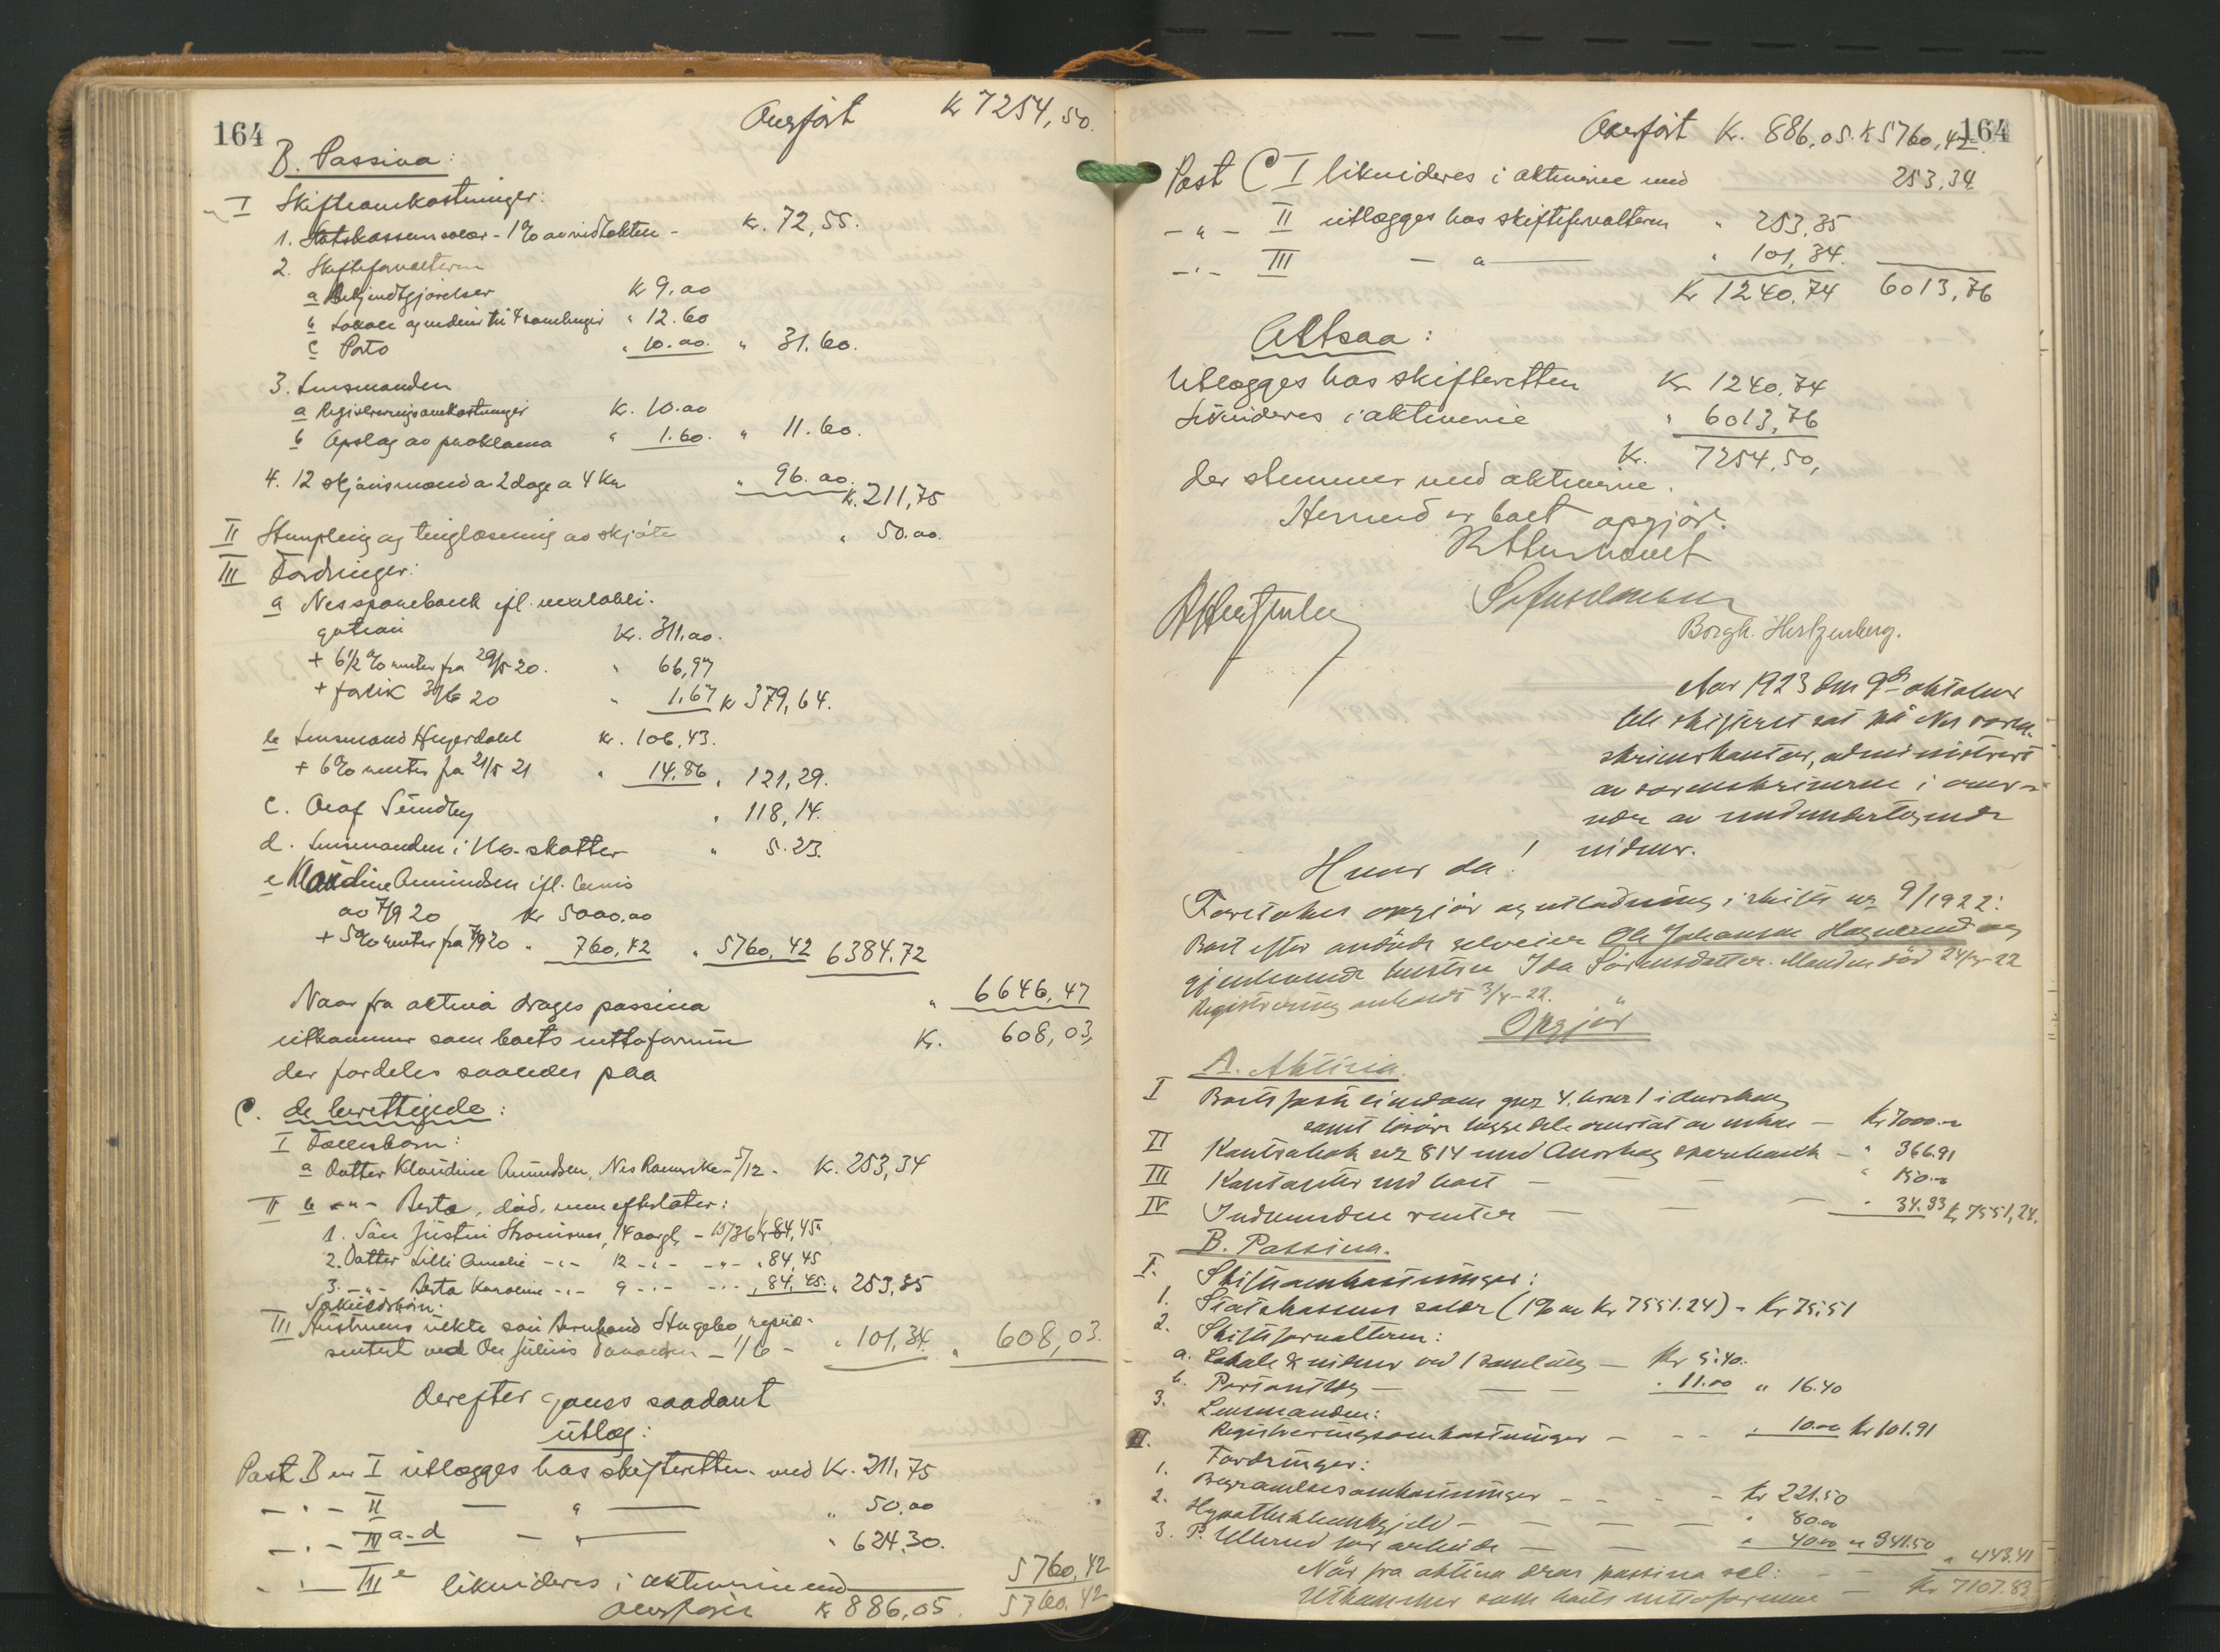 164
Overført Kr 7254,50.
B. Passiva:
I Skifteomkostninger:
1. Statskassen salær - 1% av indtekten - Kr. 72,55.
2. Skifteforvalteren
a Bekjendtgjørelser Kr 9.00
b Lokale og vidner til 4 samlinger " 12.60
c Porto " 10.00. " 31.60.
3. Lensmanden
a Registreringsomkostninger Kr. 10.00
b Opslag av proklama " 1.60. " 11.60.
4. 12 skjønsmænd a 2 dage a 4 Kr " 96.00. Kr. 211,75
II Stempling og tinglæsning av skjøte " 50.00.
III Fordringer:
a Nes sparebank ifl. vexelobli-
gation Kr. 311.00.
+ 6 1/2 % renter fra 29/5 20. " 66,97
+ " 1.67 Kr 379,64.
b Lensmand Hejerdahl Kr. 106,43.
+ 6% renter fra 21/5 21 " 14.86 " 121,29.
c. Olaf Sundby " 118,14.
d. Lensmanden i Nes - skatter " 5.23.
e Klaudine Amundsen ifl. bevis
av 7/9 20 Kr 5000.00
+ 5% renter fra 7/9 20 " 760,42 " 5760,42 6384.72
Naar fra aktiva drages passiva " 6646,47
utkommer som boets nettoformue Kr. 608,03,
der fordeles saaledes paa
C. de berettigede:
I Fællesbarn:
a Datter Klaudine Amundsen, Nes Romerike - 5/12 - Kr. 253,34
II b -"- Berta, død, men efterlater:
1. Søn Justin, 14 aar gl. - 15/36 Kr 84,45
2. Datter Lilli Amalie -"- 12 -"- -"- " 84,45
3. -"- Berta Karoline -"- 9 -"- -"- " 84,45. " 253,35
Særkuldsbarn:
III Hustruens uekte søn Bernhard Stugebo repræ-
sentert ved Ole Julius - 1/6 - " 101,34. " 608,03.
Derefter gjøres saadant
utlæg:
Post B nr I utlægges hos skifteretten med Kr. 211,75
- " - II - " - " 50,00
- " - III a-d - " - " 624.30.
- " - III e likvideres i aktiverne med 5760,42
overføres Kr 886,05. 5760,42
164
Overført Kr. 886,05. Kr 5760,42
Post C I likvideres i aktiverne med 253,34
- " - II utlægges hos skifteforvalteren " 253,35
- " - III - " - " 101,34.
Kr 1240,74 6013,76
Altsaa:
Utlægges hos skifteretten Kr. 1240,74
Likvideres i aktiverne " 6013,76
Kr. 7254,50,
der stemmer med aktiverne.
Hermed er boet opgjort.
Borgh. Hertzenberg.
Aar 1923 den 9de oktober
ble skifteret sat på Nes soren-
skriverkontor, administrert
av sorenskriveren i over-
vær av medundertegnede
vidner.
Hvor da!
Foretokes opgjør og utlodning i skifte nr 9/1922:
Boet efter avdøde selveier Ole Johansen og
gjenlevende hustru Ida Sørensdatter. Manden død 22
Registrering avholdt 3/4-22.
Opgjør
A. Aktiva.
I Boets faste eiendom gnr 4. brnr 1 i Aurskog
samt løsøre - Kr 7000.-
II Kontrabok nr 814 med Aurskog sparebank - " 366.91
III Kontanter ved boet - - - " 150.-
IV Indvundne renter - - - " 34.33 Kr 7551,24.
B. Passiva.
I. Skifteomkostninger:
1. Statskassens salær (1% av Kr 7551.24) - Kr 75.51
2. Skifteforvalteren:
a. Lokale & vidner ved 1 samling - Kr 5.40.
b. Portoutlæg - - - " 11.00 " 16.40
3. Lensmanden:
Registreringsomkostninger - - - " 10.00 Kr 101.91
II. Fordringer:
1. Begravelsesomkostninger - - - - Kr 221.50
2. Hypothekbankgjeld - - - - " 80.00
3. P. Ullerud for arbeide - - " 40.00 " 341.50 " 443.41
Når fra aktiva dras passiva - -
Utkommer som boets nettoformue - Kr 7107.83